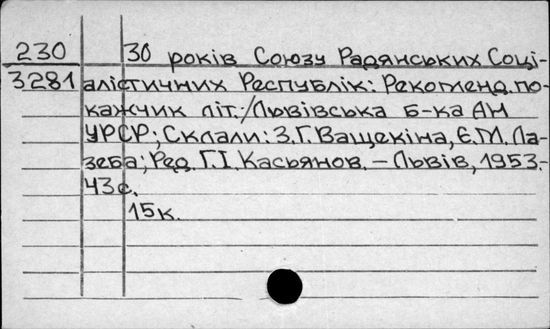 230 30 років Союзу Радянських Соці-
3281 алістичних Республік: Рекоменд. по-
кажчик літ./Львівська б-ка АН
УРСР; Склали: З.Г. Ващекіна, Є.М. Ла-
зеба; Ред. Г.І. Касьянов. – Львів, 1953.-
43 с.
15к.